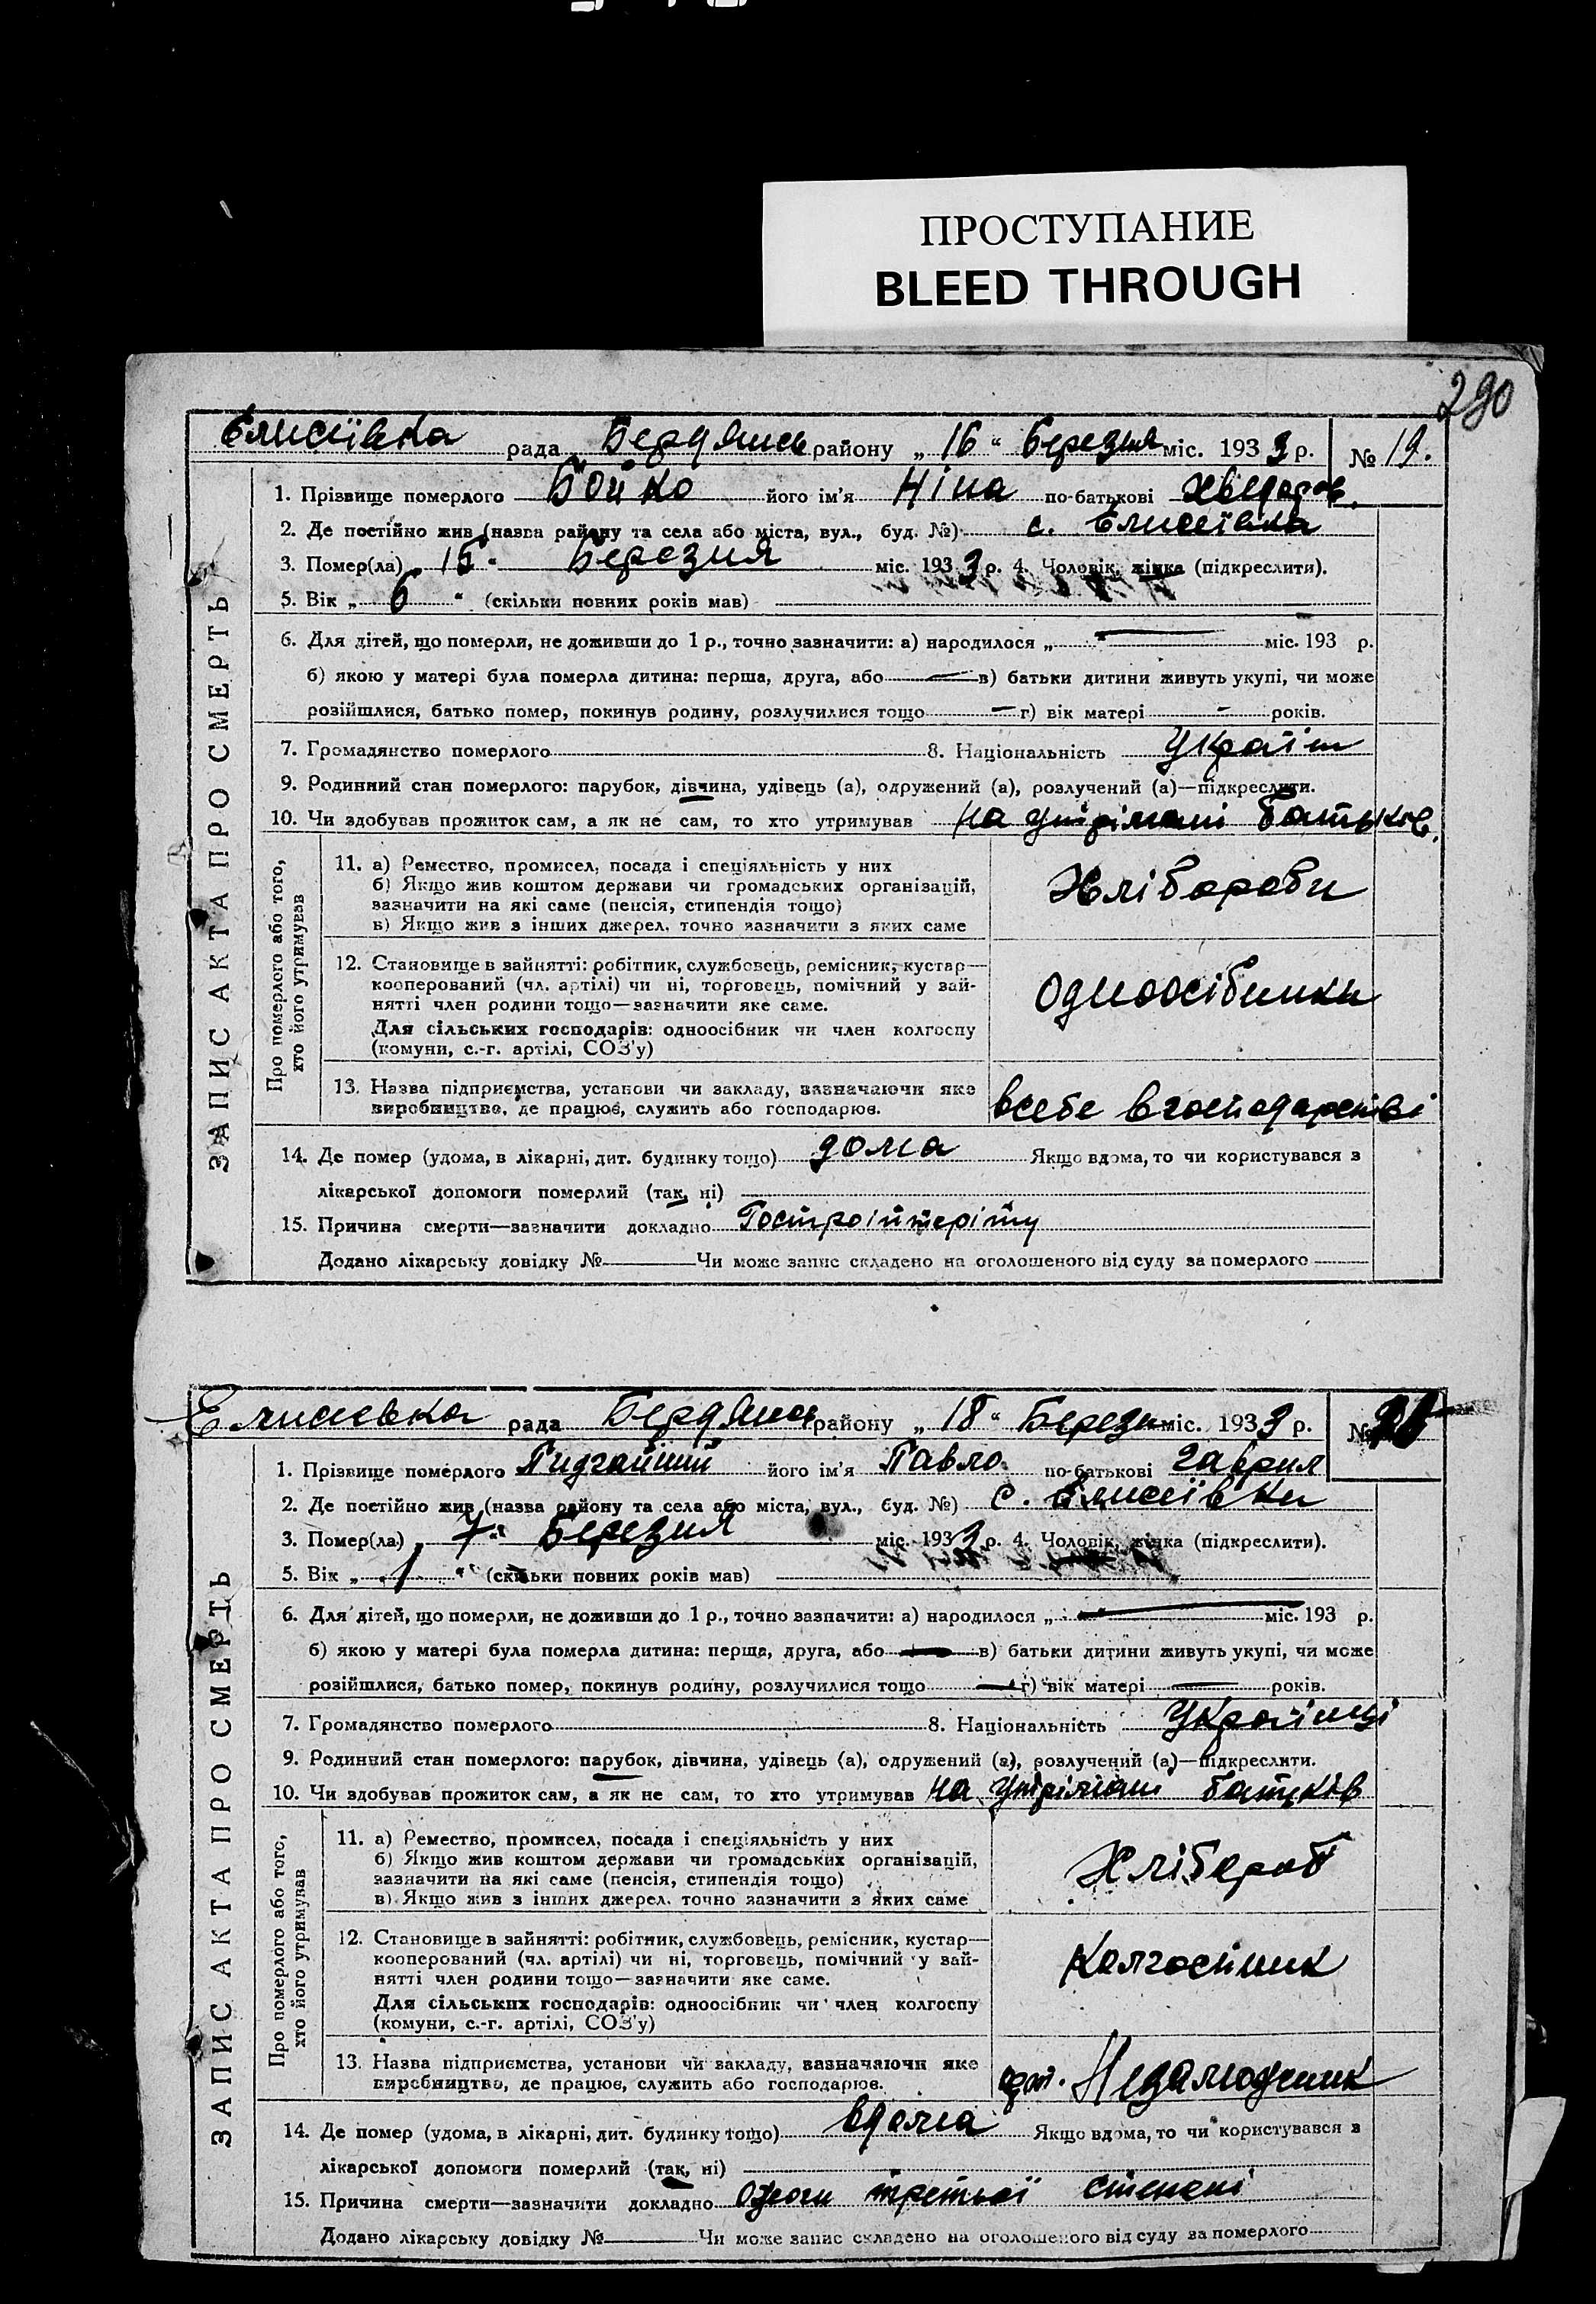 ПРОСТУПАНИЕ
BLEED THROUGH
290
Єлисіївка рада Бердянськ району „16" Березня міс. 1933 р. № 19.
1. Прізвище померлого Бойко його ім'я Ніна по-батькові Хведоров.
2. Де постійно жив (назва району та села або міста, вул., буд. №) с. Єлисеївка
3. Помер(ла) „15" Березня міс. 1933 р. 4. Чоловік, жінка (підкреслити).
5. Вік „6" (скільки повних років мав)
6. Для дітей, що померли, не доживши до 1 р., точно зазначити: а) народилося „ — " міс. 193 р.
б) якою у матері була померла дитина: перша, друга, або — в) батьки дитини живуть укупі, чи може
розійшлися, батько помер, покинув родину, розлучилися тощо — г) вік матері — років.
7. Громадянство померлого 8. Національність Україн
9. Родинний стан померлого: парубок, дівчина, удівець (а), одружений (а), розлучений (а)—підкреслити.
10. Чи здобував прожиток сам, а як не сам, то хто утримував на утрімані батьків.
ЗАПИС АКТА ПРО СМЕРТЬ
Про померлого або того, хто його утримував
11. а) Ремество, промисел, посада і спеціяльність у них
б) Якщо жив коштом держави чи громадських організацій,
зазначити на які саме (пенсія, стипендія тощо)
в) Якщо жив з інших джерел, точно зазначити з яких саме
Хлібороби
12. Становище в зайнятті: робітник, службовець, ремісник, кустар—
кооперований (чл. артілі) чи ні, торговець, помічний у зай-
нятті член родини тощо—зазначити яке саме.
Для сільських господарів: одноосібник чи член колгоспу
(комуни, с.-г. артілі, СОЗ'у)
Одноосібники
13. Назва підприємства, установи чи закладу, зазначаючи яке
виробництво, де працює, служить або господарює.
всебе вгосподарстві
14. Де помер (удома, в лікарні, дит. будинку тощо) дома Якщо вдома, то чи користувався з
лікарської допомоги померлий (так, ні)
15. Причина смерти—зазначити докладно Гостроінтеріту
Додано лікарську довідку №— Чи може запис складено на оголошеного від суду за померлого
Єлисєєвка рада Бердянськ району „18" Березн міс. 1933 р. № 20
1. Прізвище померлого Пидгайний його ім'я Павло по-батькові Гаврил
2. Де постійно жив (назва району та села або міста, вул., буд. №) с. Єлисеївки
3. Помер(ла) „7" Березня міс. 1933 р. 4. Чоловік, жінка (підкреслити).
5. Вік „1" (скільки повних років мав)
6. Для дітей, що померли, не доживши до 1 р., точно зазначити: а) народилося „ — " міс. 193 р.
б) якою у матері була померла дитина: перша, друга, або — в) батьки дитини живуть укупі, чи може
розійшлися, батько помер, покинув родину, розлучилися тощо — г) вік матері — років.
7. Громадянство померлого 8. Національність Українці
9. Родинний стан померлого: парубок, дівчина, удівець (а), одружений (а), розлучений (а)—підкреслити.
10. Чи здобував прожиток сам, а як не сам, то хто утримував на утрімані батьків
ЗАПИС АКТА ПРО СМЕРТЬ
Про померлого або того, хто його утримував
11. а) Ремество, промисел, посада і спеціяльність у них
б) Якщо жив коштом держави чи громадських організацій,
зазначити на які саме (пенсія, стипендія тощо)
в) Якщо жив з інших джерел, точно зазначити з яких саме
Хлібороб
12. Становище в зайнятті: робітник, службовець, ремісник, кустар—
кооперований (чл. артілі) чи ні, торговець, помічний у зай-
нятті член родини тощо—зазначити яке саме.
Для сільських господарів: одноосібник чи член колгоспу
(комуни, с.-г. артілі, СОЗ'у)
Колгоспник
13. Назва підприємства, установи чи закладу, зазначаючи яке
виробництво, де працює, служить або господарює.
арт. Незаможник
14. Де помер (удома, в лікарні, дит. будинку тощо) вдома Якщо вдома, то чи користувався з
лікарської допомоги померлий (так, ні)
15. Причина смерти—зазначити докладно Ожоги третьої степені
Додано лікарську довідку №— Чи може запис складено на оголошеного від суду за померлого